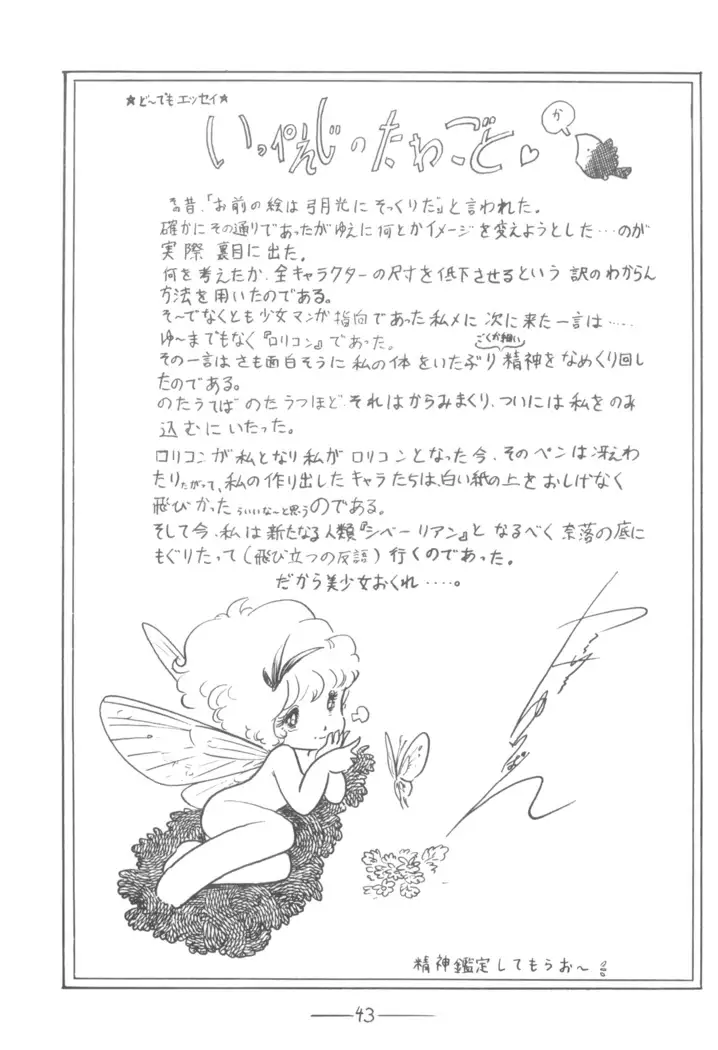 ★ど〜でもエッセイ★
いっぺんじのたわごと♡
か
昔、「お前の絵は弓月光にそっくりだ」と言われた。
確かにその通りであったがゆえに何とかイメージを変えようとした…のが
実際裏目に出た。
何を考えたか、全キャラクターの尺寸を低下させるという訳のわからん
方法を用いたのである。
そ〜でなくとも少女マンガ指向であった私メに次に来た一言は……
ゆ〜までもなく『ロリコン』であった。
その一言はさも面白そうに私の体をいたぶり精神をなめくり回し
ごくか細い
たのである。
のたうてばのたうつほど、それはからみまくり、ついには私をのみ
込むにいたった。
ロリコンが私となり私がロリコンとなった今、そのペンは冴えわ
たりたがって、私の作り出したキャラたちは、白い紙の上をおしげなく
飛びかったういいな〜と思うのである。
そして今、私は新たなる人類『シベーリアン』となるべく奈落の底に
もぐりたって(飛び立つの反語)行くのであった。
だから美少女おくれ……。
精神鑑定してもらお〜
43